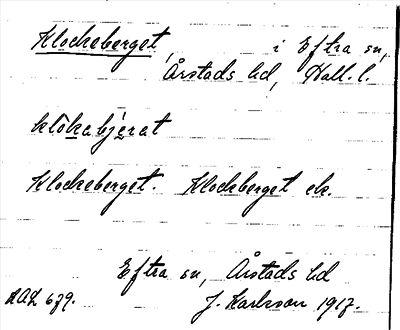 Klockeberget, i Eftra sn,
Årstads hd, Hall. l.
klåkabjæ̀rat
Klockeberget. Klockberget ek.
Eftra sn, Årstads hd
AAL 679. J. Karlsson 1917.